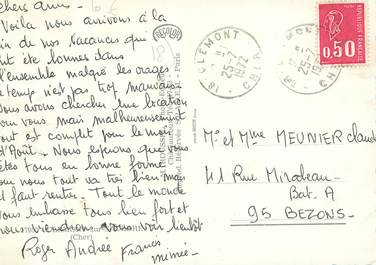 chers amis
Voila nous arrivons à la
fin de nos vacances qui
ont été bonnes dans
l'ensemble malgré les orages
le temps n'est pas trop mauvais
nous avons chercher une location
pour vous mais malheureusement
tout est complet pour le mois
d'Août. Nous espérons que vous
êtes tous en bonne forme
pour nous tout va très bien mais
il faut rentrer. Tout le monde
vous embrasse tous bien fort et
nous viendrons vous voir bientôt
Roger Andrée Francis
mimie.
(Cher)
CLÉMONT
25-7
1972
18 CHER
25-7
1972
CHER
REPUBLIQUE FRANÇAISE
0,50
POSTES
Mr et Mme MEUNIER Claude
41 Rue Mirabeau
Bat. A
95 BEZONS.